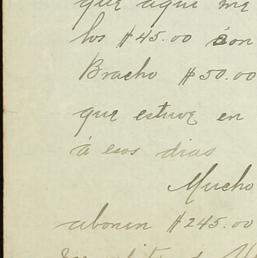 que aqui me
los $45.00 son
Bracho $50.00
que estuve en
á esos dias
Mucho
abonen $245.00